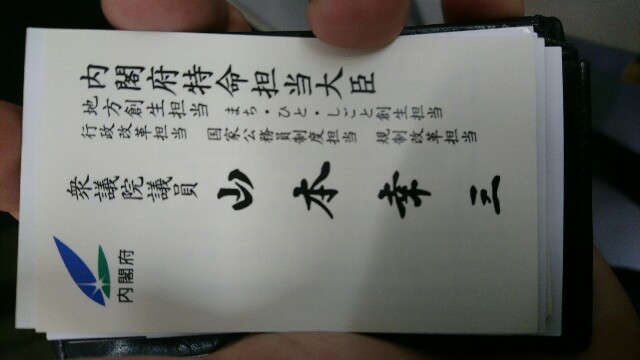 内閣府特命担当大臣
地方創生担当 まち・ひと・しごと創生担当
行政改革担当 国家公務員制度担当 規制改革担当
衆議院議員 山本幸三
内閣府